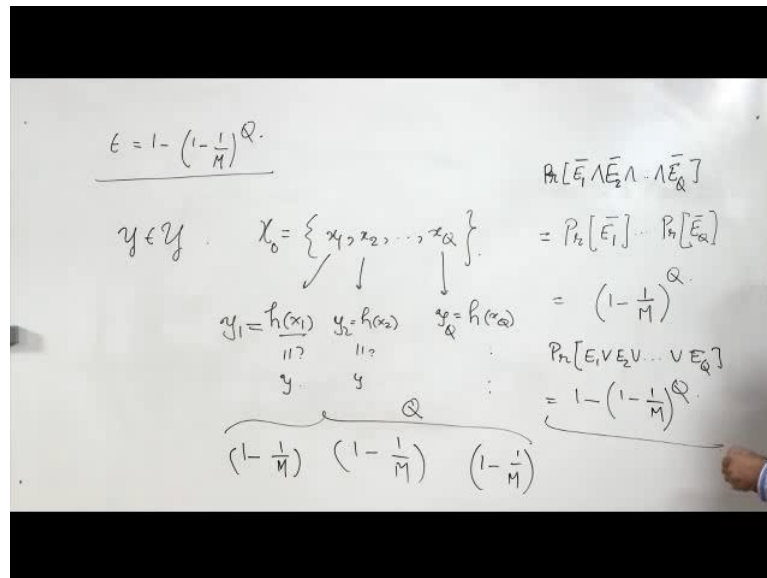 ϵ = 1 - (1 - 1/M)^Q.
y ∈ Y. X₀ = { x₁, x₂, ..., x_Q }.
y₁ = h(x₁) y₂ = h(x₂) y_Q = h(x_Q)
||? ||? :
y. y :
Q
(1 - 1/M) (1 - 1/M) (1 - 1/M)
Pr[Ē₁ ∧ Ē₂ ∧ .. ∧ Ē_Q]
= Pr[Ē₁] ... Pr[Ē_Q]
= (1 - 1/M)^Q.
Pr[E₁ ∨ E₂ ∨ ... ∨ E_Q]
= 1 - (1 - 1/M)^Q.